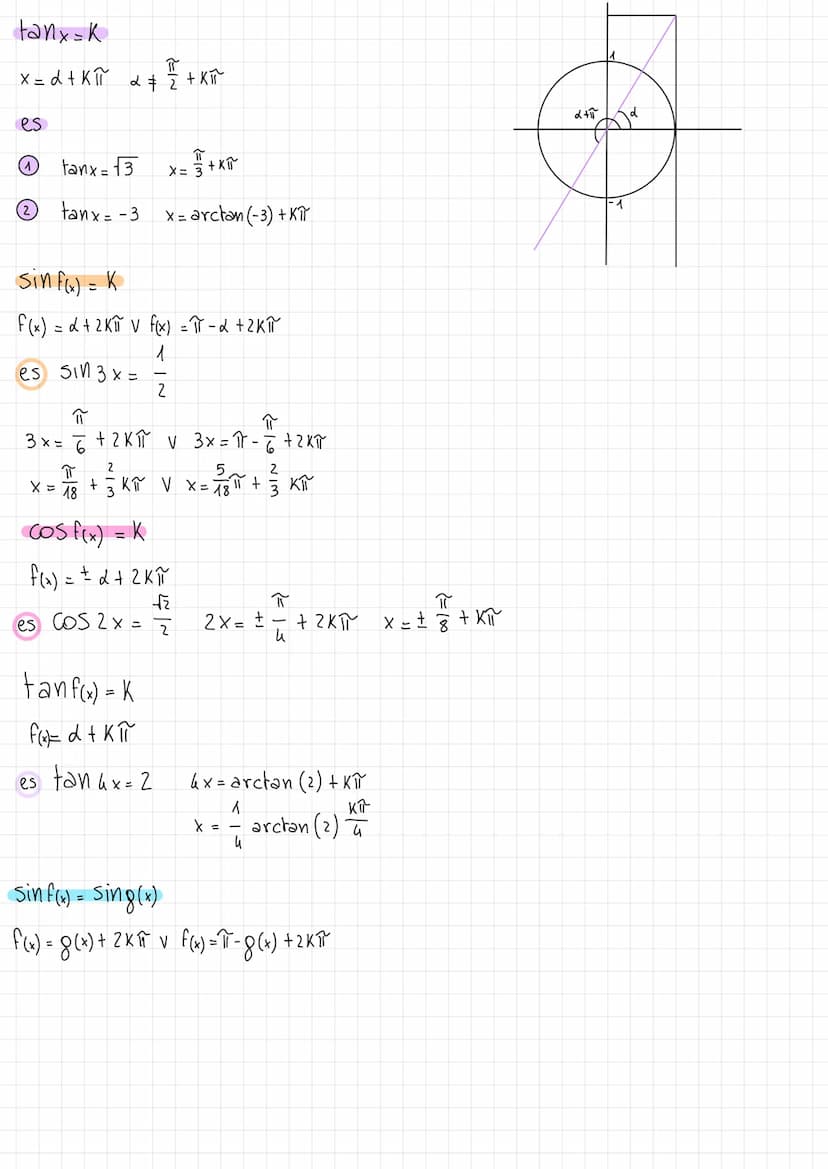 tanx = K
x = α + Kπ α ≠ π/2 + Kπ
es
1 tanx = √3 x = π/3 + Kπ
2 tanx = -3 x = arctan(-3) + Kπ
1
α+π α
-1
sin f(x) = K
f(x) = α + 2Kπ ∨ f(x) = π - α + 2Kπ
es sin3x = 1/2
3x = π/6 + 2Kπ ∨ 3x = π - π/6 + 2Kπ
x = π/18 + 2/3 Kπ ∨ x = 5/18 π + 2/3 Kπ
cos f(x) = K
f(x) = ± α + 2Kπ
es cos 2x = √2/2 2x = ± π/4 + 2Kπ x = ± π/8 + Kπ
tan f(x) = K
f(x) = α + Kπ
es tan 4x = 2 4x = arctan(2) + Kπ
x = 1/4 arctan(2) Kπ/4
sin f(x) = sin g(x)
f(x) = g(x) + 2Kπ ∨ f(x) = π - g(x) + 2Kπ